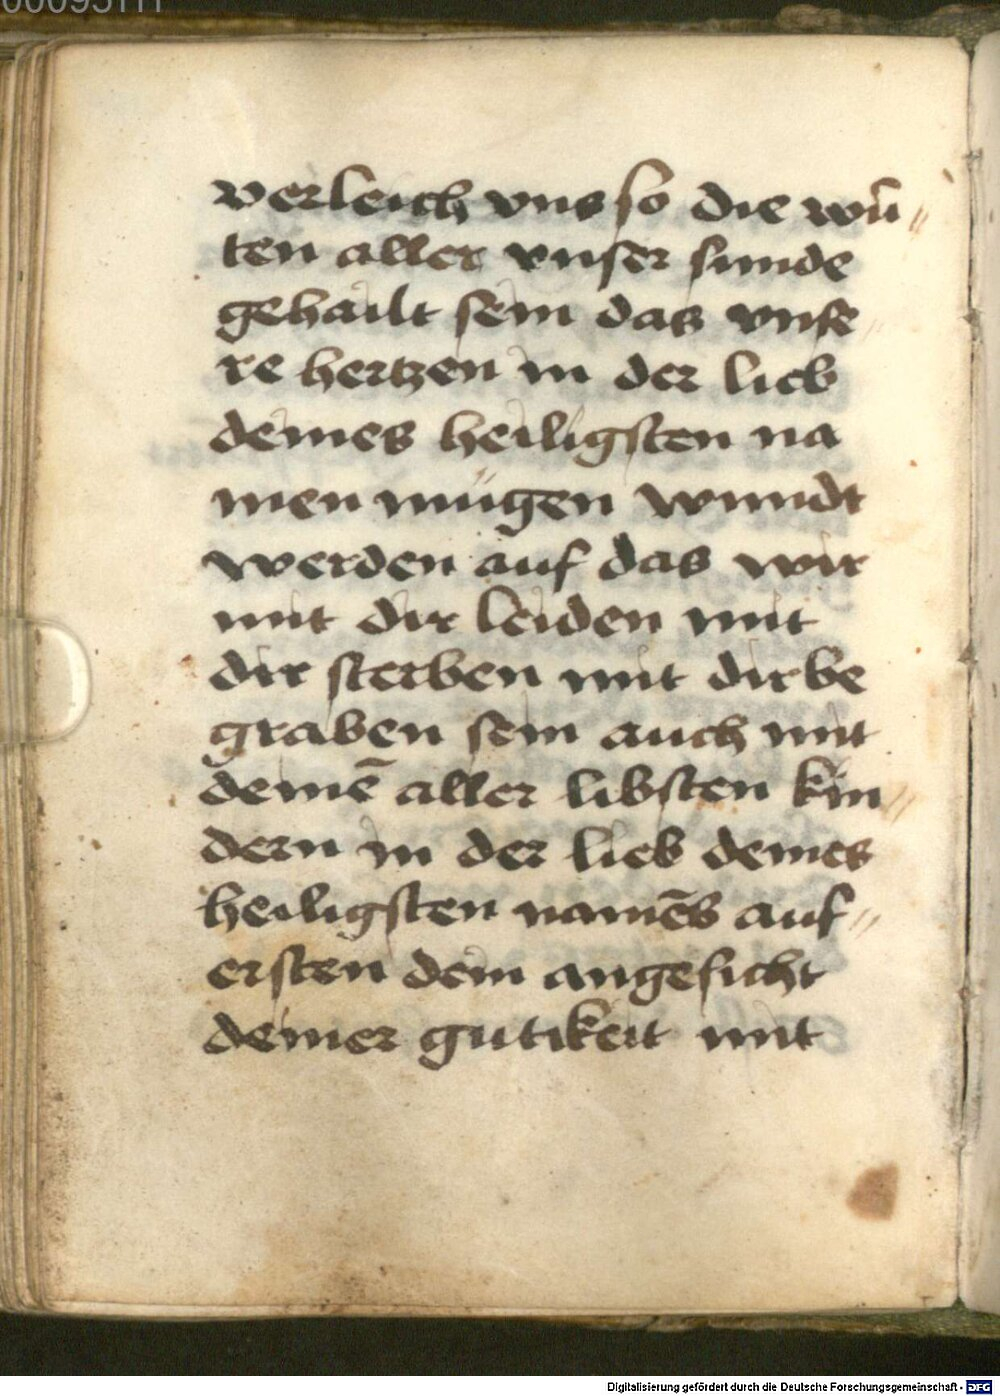 verleich vns so die wū⸗
ten aller vnser sunde
gehailt sein das vnse⸗
re hertzen in der lieb
deines heiligsten na
men mügen wundt
werden auf das wir
mit dir leiden mit
dir sterben mit dir be
graben sein auch mit
deinē aller libsten kin⸗
dern in der lieb deines
heiligsten namēs auf⸗
ersten dem angesicht
deiner gutikeit mit
Digitalisierung gefördert durch die Deutsche Forschungsgemeinschaft - DFG